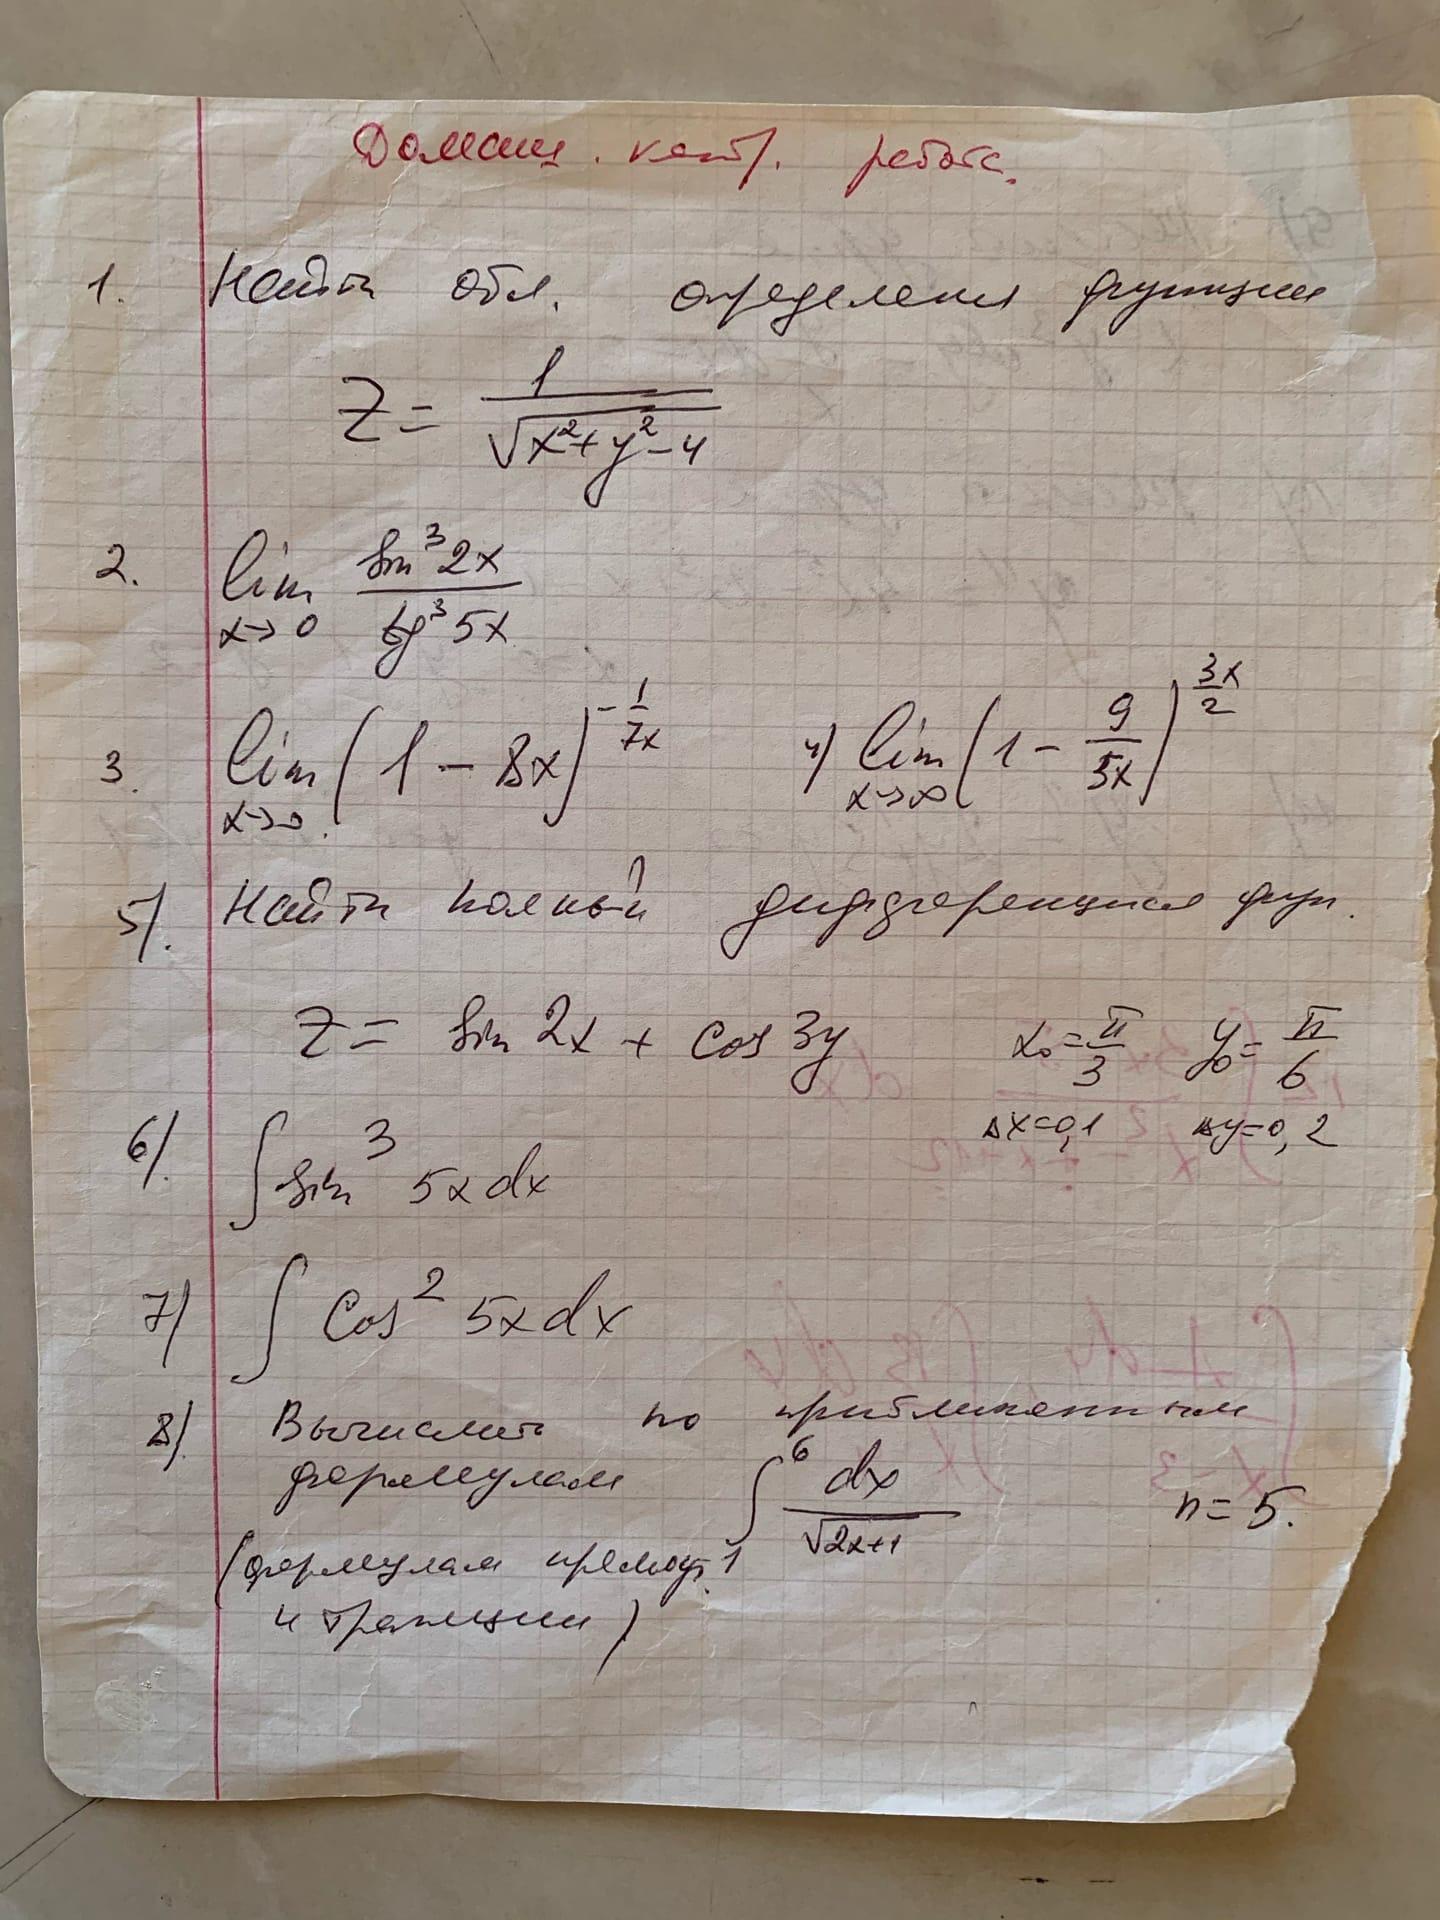 Домашн. контр. работа.
1. Найти обл. определения функции
Z = 1/√(x²+y²-4)
2. lim x→0 sin³2x / tg³5x
3. lim x→0 (1 - 8x)^(-1/7x) 4) lim x→∞ (1 - 9/5x)^(3x/2)
5). Найти полный дифференциал фун.
Z = sin 2x + cos 3y x₀ = π/3 y₀ = π/6
Δx=0,1 Δy=0,2
6). ∫ sin³ 5x dx
7) ∫ cos² 5x dx
8). Вычислить по приближенным
формулам ∫₁⁶ dx/√(2x+1) n = 5.
(формулам прямоуг.
и трапеции)